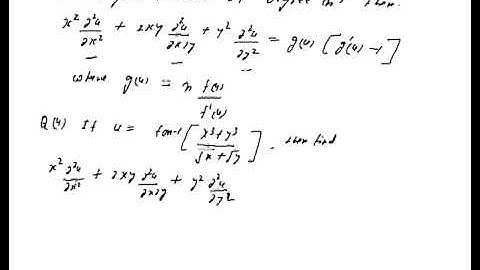 x² ∂²u/∂x² + 2xy ∂²u/∂x∂y + y² ∂²u/∂y² = g(u) [g'(u) -1]
where g(u) = n f(u)/f'(u)
Q(4) If u = tan-1 [x³+y³/√x+√y], then find
x² ∂²u/∂x² + 2xy ∂²u/∂x∂y + y² ∂²u/∂y²